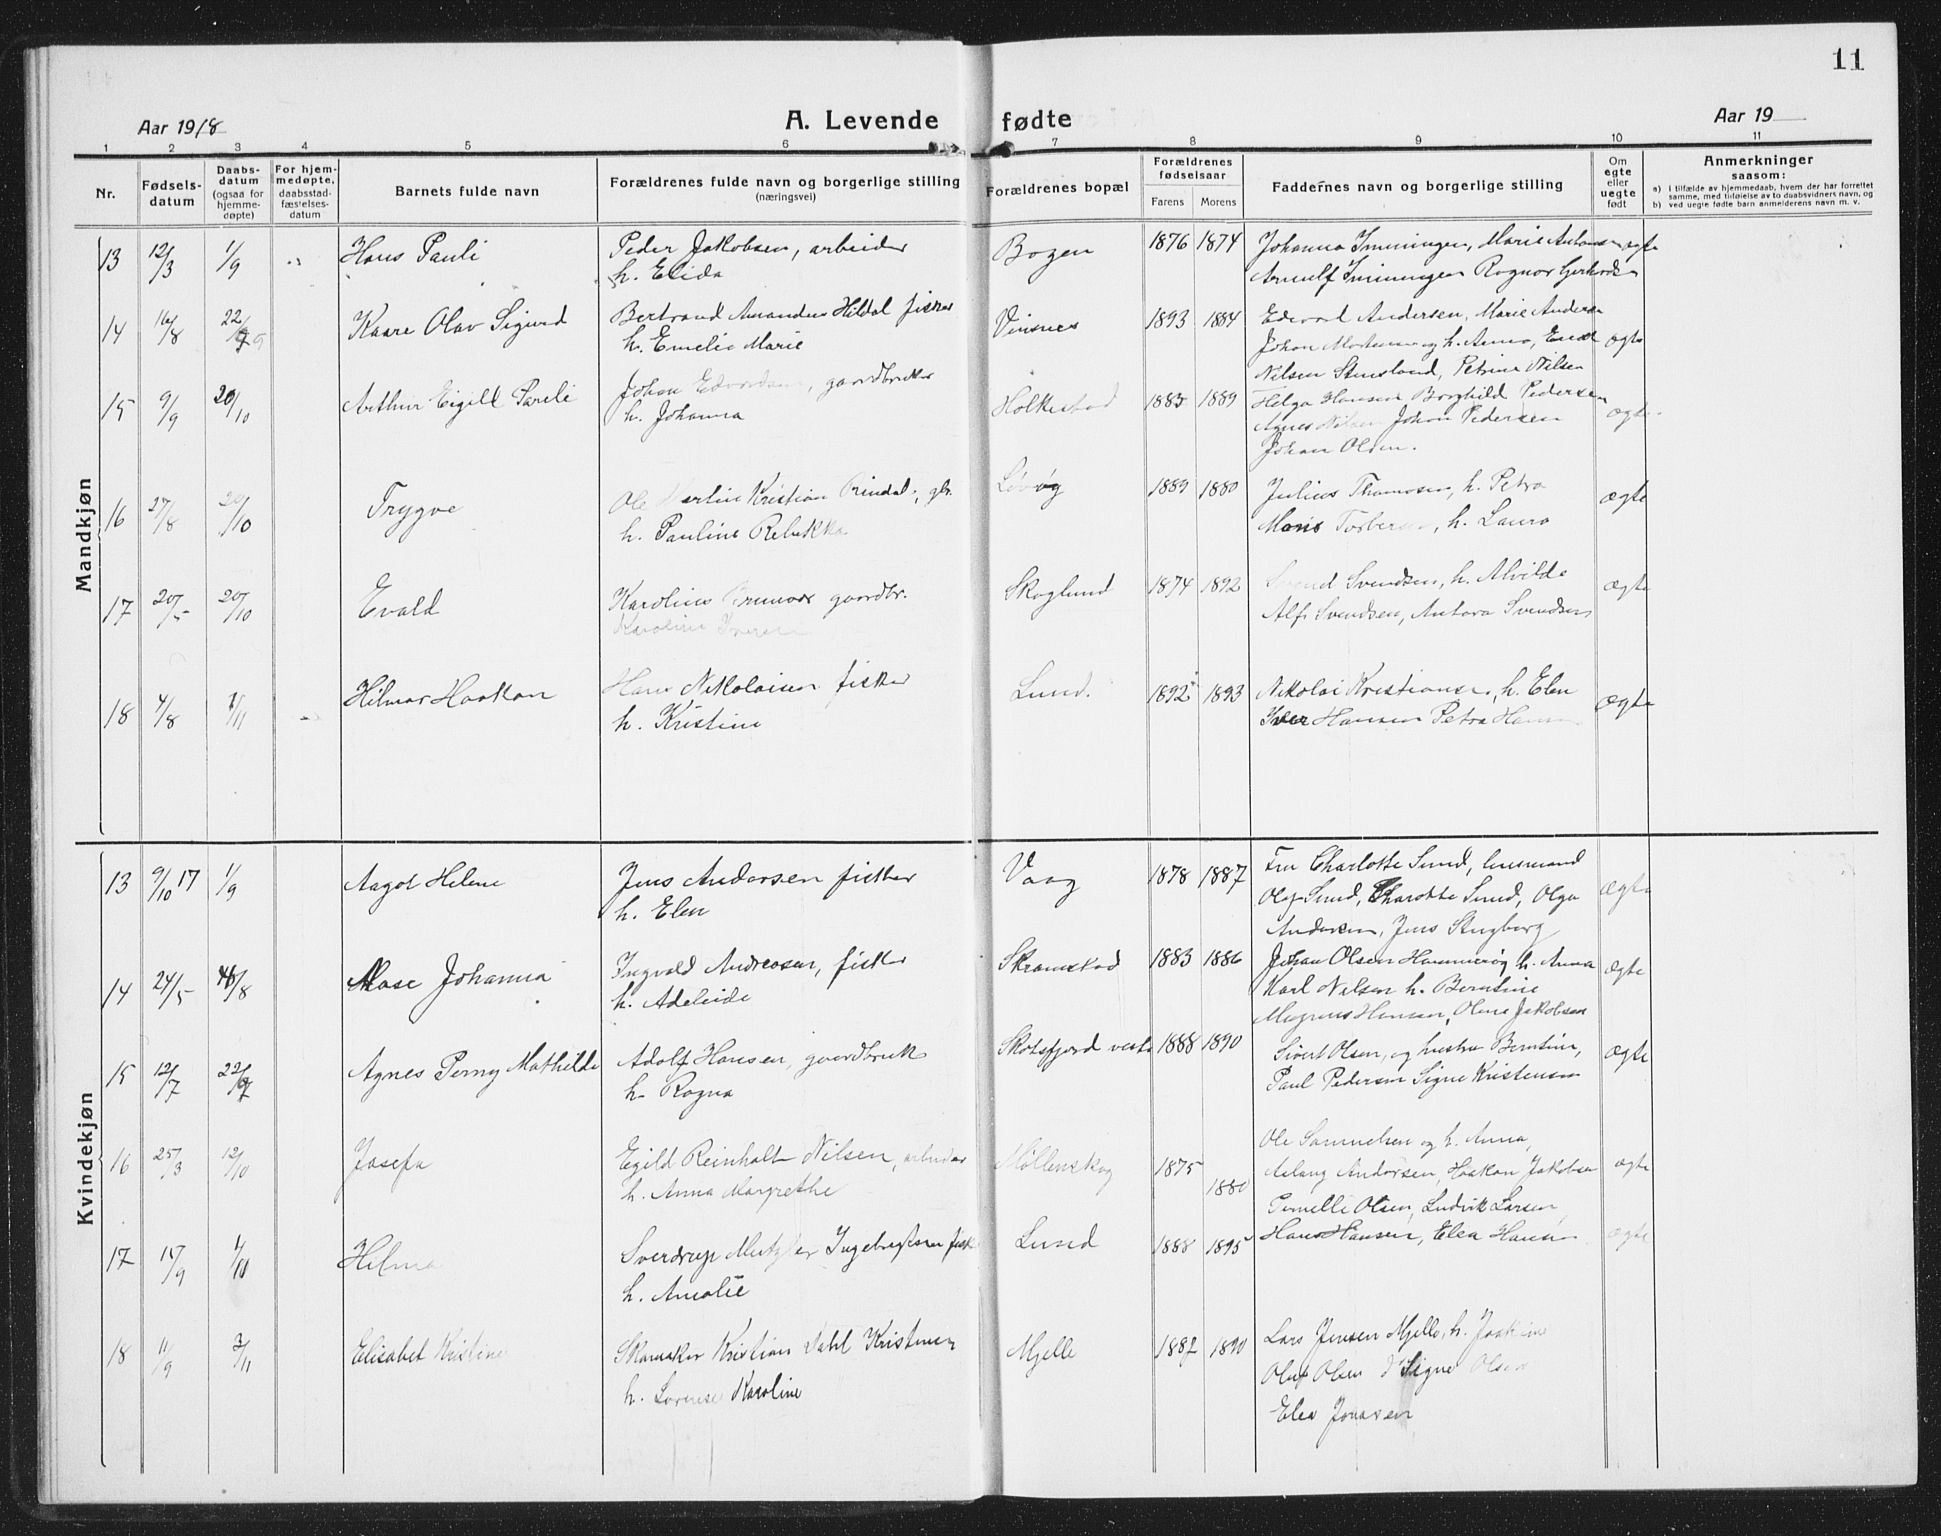 11
Aar 1918 A. Levende fødte Aar 19
1 2 3 4 5 6 7 8 9 10 11
Nr. Fødsels-datum Daabs-datum (ogsaa for hjemme-døpte) For hjem-medøpte, daabsstad-fæstelses-datum Barnets fulde navn Forældrenes fulde navn og borgerlige stilling (næringsvei) Forældrenes bopæl Forældrenes fødselsaar Farens Morens Faddernes navn og borgerlige stilling Om egte eller uegte født Anmerkninger saasom:
a) i tilfælde av hjemmedaab, hvem der har forrettet samme, med tilføielse av to daabsvidners navn, og
b) ved uegte fødte barn anmelderens navn m. v.
Mandkjøn
13 12/3 1/9 Hans Pauli Peder Jakobsen, arbeider Bogen 1876 1874 Johanna Imingen, Marie Antonsen ægte
h. Elida Arnulf Imingen Ragnar
14 16/8 22/9 Kaare Olav Sigurd Bertrand Amandus Hildal fisker Vinsnes 1893 1884 Edvard Andersen, Marie Andersen
h. Emelie Marie Johan og h. Anna, ægte
Nilsen Petrine Nilsen
15 9/9 20/10 Arthur Eigill Pareli Johan Edvardsen, gaardbruker Holkestad 1885 1889 Helga Hansen Borghild Pedersen
h. Johanna Agnes Nilsen Johan Pedersen ægte
Johan Olsen.
16 27/8 20/10 Trygve Ole Martin Kristian Rindal, gbr. Løvøy 1889 1880 Julius Thomasen, h. Petra ægte
h. Pauline Rebekka h. Laura
17 20/5 20/10 Evald Karolius gaardbr. Skoglund 1874 1892 Svend Svendsen, h. Alvilde ægte
Karoline Alf Svendsen, Antora Svendsen
18 4/8 1/11 Hilmar Haakon Hans Nikolaisen fisker Lund. 1892 1893 Nikolai Kristiansen, h. Elen ægte
h. Kristine Iver Hansen Petra Hansen
Kvindekjøn
13 9/10 17 1/9 Aagot Helene Jens Andersen fisker Vaag 1878 1887 Fru Charlotte Sund, lensmand ægte
h. Elen Olaf Sund, Charlotte Sund, Olga
Andersen, Jens
14 24/5 /8 Aase Johanna Ingvald Andreasen, fisker Skramstad 1883 1886 Johan Olsen Hammerøy h. Anna ægte
h. Adeleide Karl Nilsen h. Berntine
Magnus Hansen, Oline Jakobsen
15 12/7 22/9 Agnes Perny Mathilde Adolf Hansen, gaardbruk Skotsfjord vestre 1888 1890 Sivert Olsen, og hustru Berntine, ægte
h. Ragna Paul Pedersen Signe Kristensen
16 25/3 12/10 Josefa Egild Reinholt Nilsen, arbeider Møllenskog 1875 1880 Ole Samuelsen og h. Anna, ægte
h. Anna Margrethe Aslaug Andersen, Haakon Jakobsen
Pernelle Olsen, Ludvik Larsen
17 15/9 1/10 Hilma Sverdrup Ingebrigtsen fisk Lund 1888 1895 Hans Hansen, Elea Hansen ægte
h. Amalie
18 11/9 3/11 Elisabet Kristine Skomaker Kristian Dahl Kristensen Mjelle 1882 1890 Lars Jensen Mjelle, h. Joakine
h. Lorense Karoline Oluf Olsen Signe Olsen
Elea Jonasen